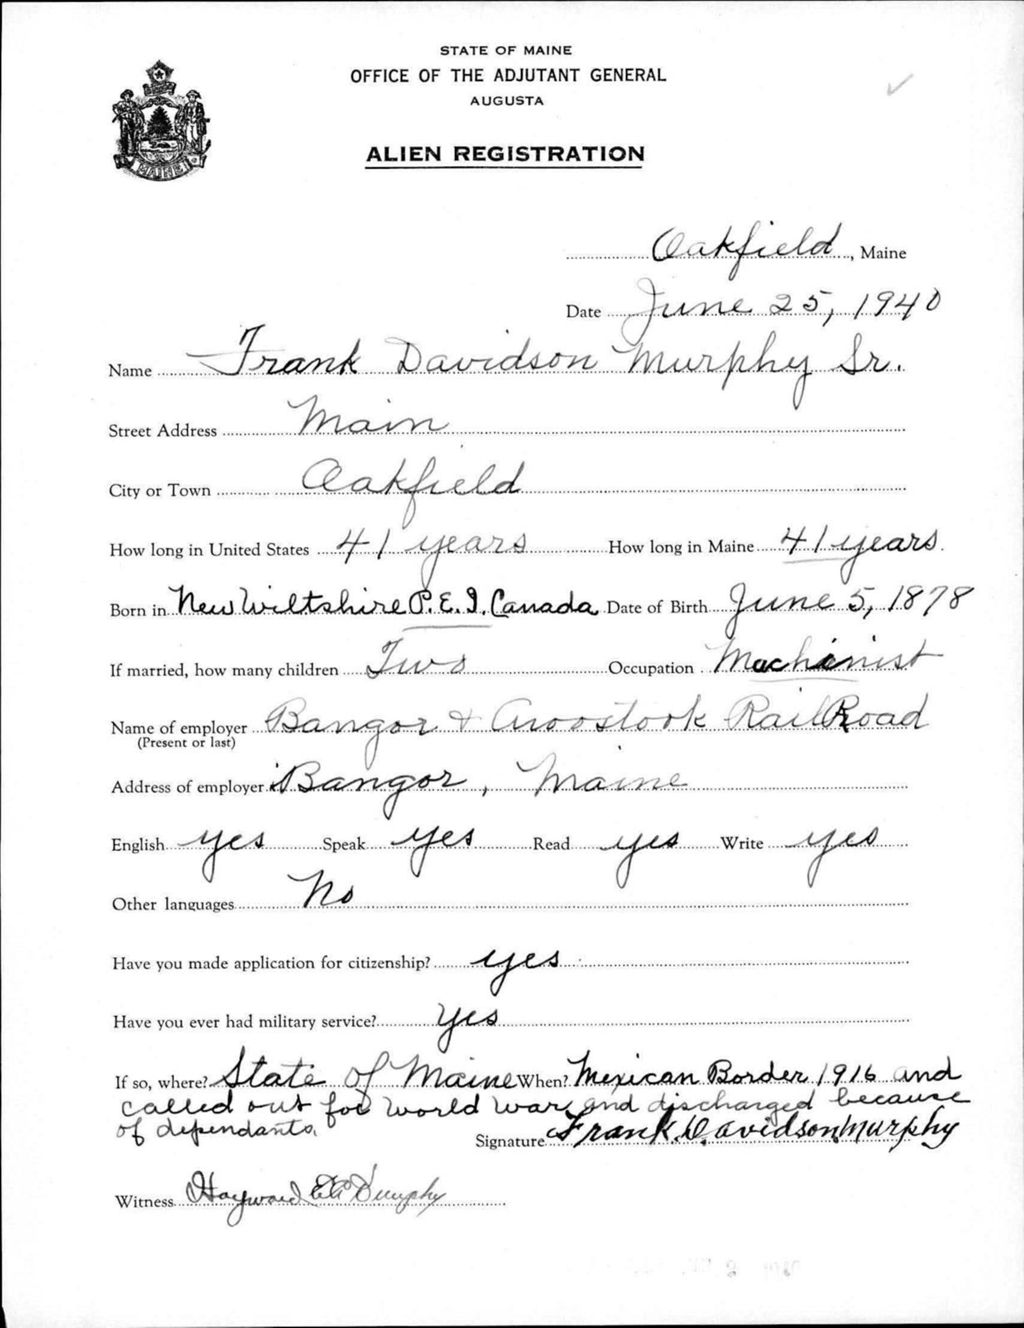 STATE OF MAINE
OFFICE OF THE ADJUTANT GENERAL
AUGUSTA
ALIEN REGISTRATION
MAINE
Oakfield, Maine
Date June 25, 1940
Name Frank Davidson Murphy Sr.
Street Address Main
City or Town Oakfield
How long in United States 41 years How long in Maine 41 years.
Born in New Wiltshire P.E.I. Canada Date of Birth June 5, 1878
If married, how many children Two Occupation Machinist
Name of employer Bangor & Aroostook RailRoad
(Present or last)
Address of employer Bangor, Maine
English yes Speak yes Read yes Write yes
Other languages No
Have you made application for citizenship? yes
Have you ever had military service? yes
If so, where? State of Maine When? Mexican Border 1916 and
called out for World War, and discharged because
of dependants.
Signature Frank Davidson Murphy
Witness Hayward